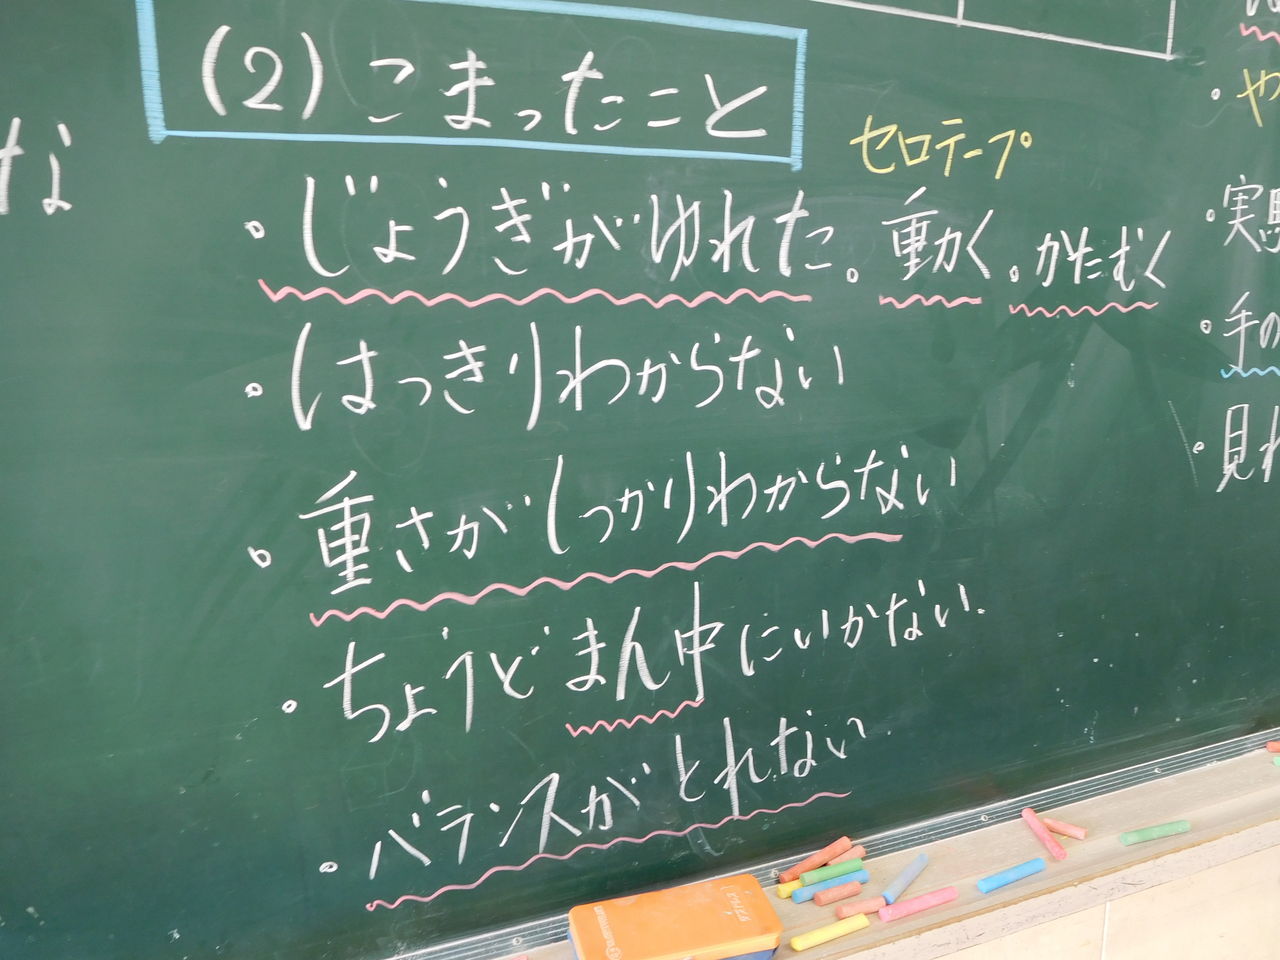 (2)こまったこと
セロテープ
・じょうぎがゆれた。動く。かたむく
・はっきりわからない
・重さがしっかりわからない
・ちょうどまん中にいかない
・バランスがとれない
な
・や
・実験
・手の
・見れ